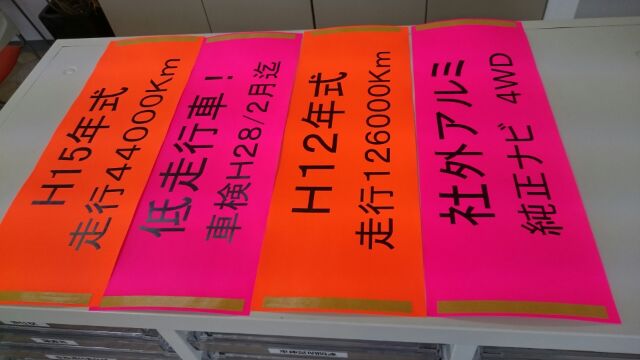 H15年式
走行44000Km
低走行車！
車検H28/2月迄
H12年式
走行126000Km
社外アルミ
純正ナビ 4WD